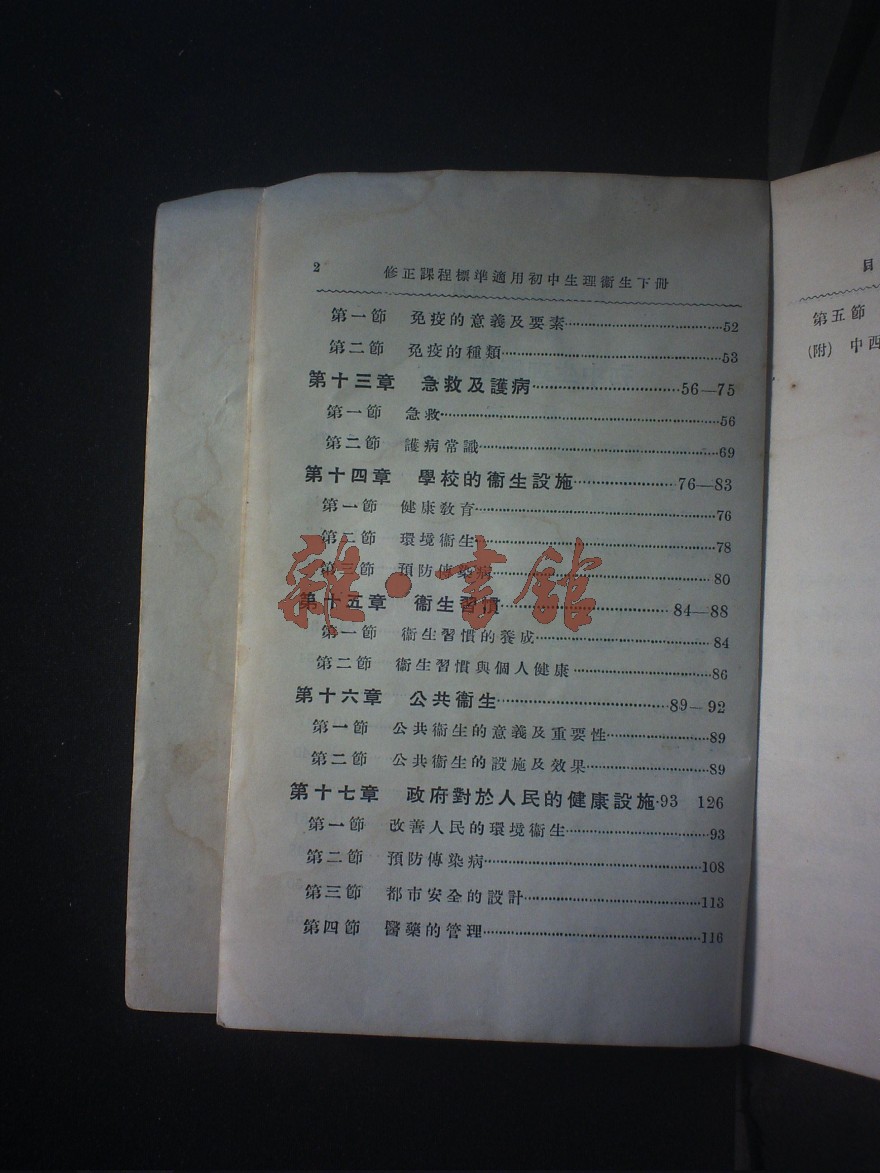 2　修正課程標準適用初中生理衞生下冊
第一節　免疫的意義及要素……52
第二節　免疫的種類……53
第十三章　急救及護病……56—75
第一節　急救……56
第二節　護病常識……69
第十四章　學校的衞生設施……76—83
第一節　健康敎育……76
第二節　環境衞生……78
第三節　預防傳染病……80
第十五章　衞生習慣……84—88
第一節　衞生習慣的養成……84
第二節　衞生習慣與個人健康……86
第十六章　公共衞生……89—92
第一節　公共衞生的意義及重要性……89
第二節　公共衞生的設施及效果……89
第十七章　政府對於人民的健康設施·93　126
第一節　改善人民的環境衞生……93
第二節　預防傳染病……108
第三節　都市安全的設計……113
第四節　醫藥的管理……116
雜·書館
目
第五節
(附)　中西